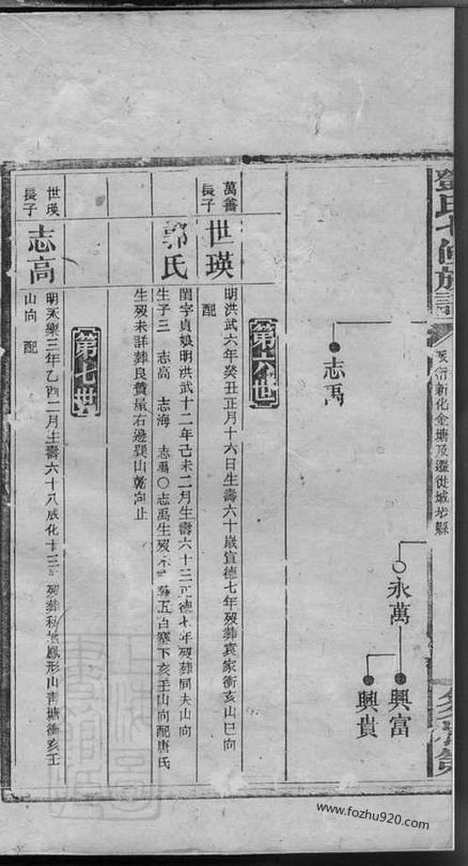 鄧氏七修族譜
志禹
永萬
興富
興貴
第六世
萬蕃長子
世瑛
明洪武六年癸丑正月十六日生壽六十歲宣德七年歿葬袁家衝亥山巳向
配
郭氏
閨字貞娘明洪武十二年己未二月生壽六十三正德七年歿葬同夫山向
生子三 志高 志海 志禹○志禹生歿未 葬五白寨下亥壬山向配唐氏
生歿未詳葬良賛屋右邊巽山乾向止
第七世
世瑛長子
志高
明永樂三年乙酉二月生壽六十八成化十三 歿葬 鳳形山靑塘衝亥壬
山向 配
www.fozhu920.com